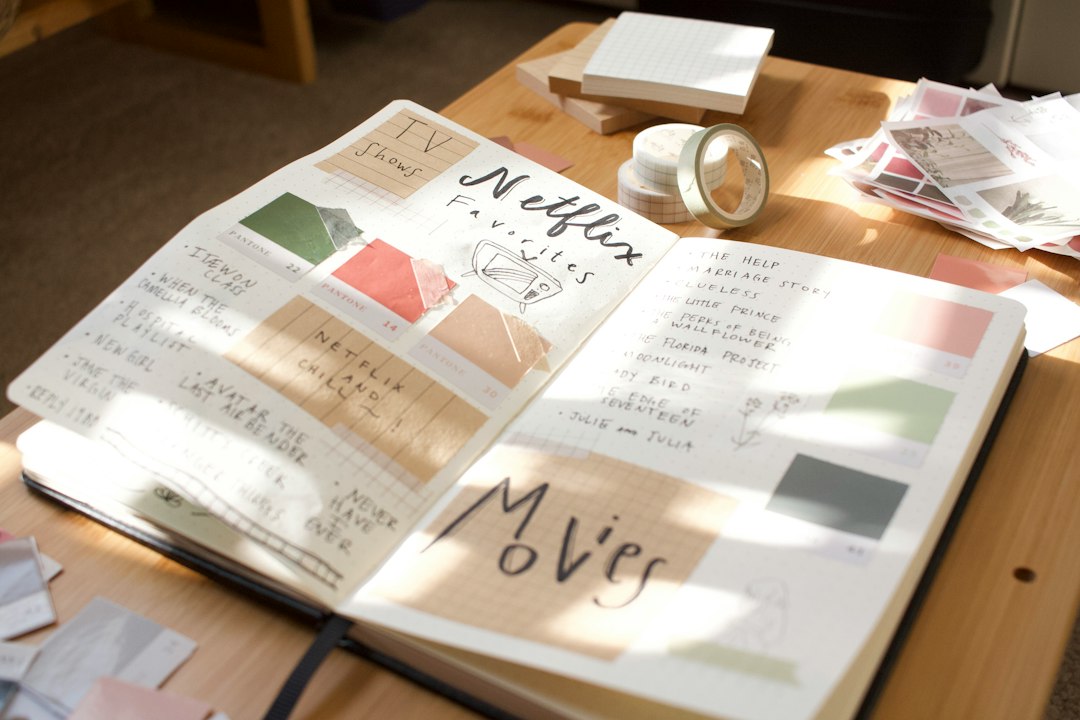 TV
Shows
Netflix
Favorites
PANTONE 22
PANTONE 14
PANTONE 30
• ITEWON
CLASS
• WHEN THE
CAMELLIA BLOOMS
• HOSPITAL
PLAYLIST
• NEW GIRL
• JANE THE
VIRGIN
• REPLY 1988
NETFLIX
AND
CHILL ~!
• AVATAR THE
LAST AIRBENDER
• NEVER
HAVE
I
EVER
• THE HELP
MARRIAGE STORY
CLUELESS
THE LITTLE PRINCE
THE PERKS OF BEING
A WALLFLOWER
THE FLORIDA PROJECT
MOONLIGHT
DY BIRD
EDGE OF
SEVENTEEN
• JULIE AND JULIA
Movies